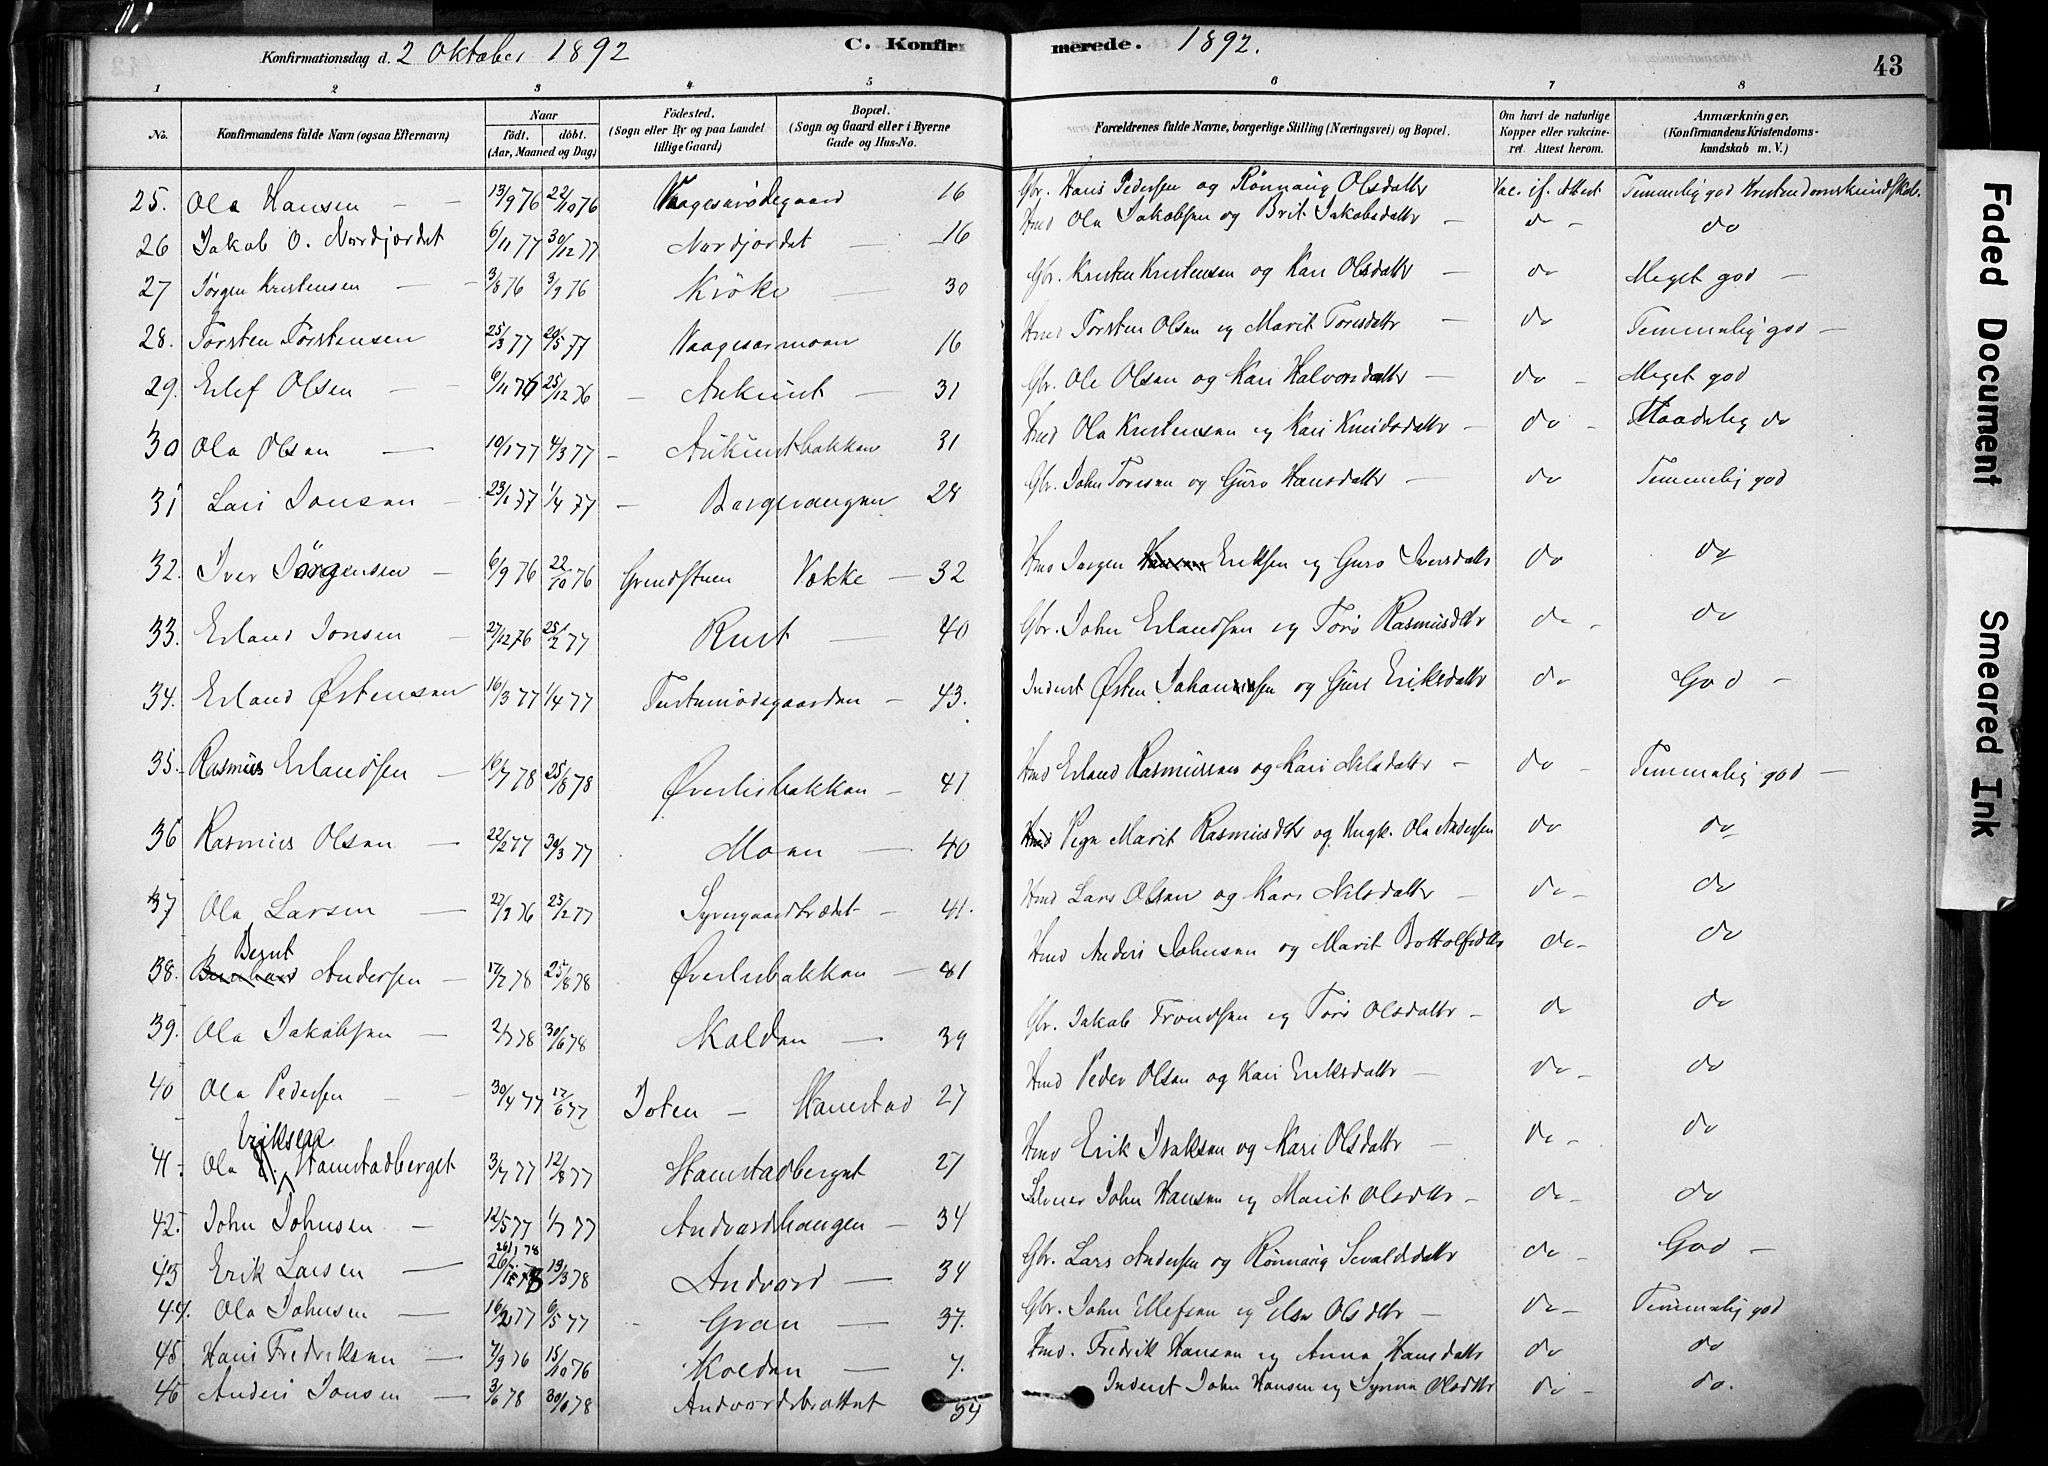 Konfirmationsdag d. 2 Oktober 1892 C. Konfir merede. 1892. 43
1 2 3 4 5 6 7 8
No. Konfirmandens fulde Navn (ogsaa Efternavn) Naar født. døbt. (Aar, Maaned og Dag) Fødested. (Sogn eller By og paa Landet tillige Gaard) Bopæl. (Sogn og Gaard eller i Byerne Gade og Hus-No. Forældrenes fulde Navne, borgerlige Stilling (Næringsvei) og Bopæl. Om havt de naturlige Kopper eller vakcineret. Attest herom. Anmærkninger. (Konfirmandens Kristendomskundskab m. V.)
25. Ola Hansen 13/9 76 22/10 76 16 Gbr. Hans Pedersen og Rønnaug Olsdattr Vac. if. Attest Temmelig god Kristendomskundskab.
26 Jakob O. Nordjordet 6/11 77 30/12 77 Nordjordet 16 Hmd Ola Jakobsen og Brit Jakobsdattr do do
27 Jørgen Kristensen 3/8 76 3/9 76 Krøke 30 Gbr. Kristen Kristensen og Kari Olsdattr do Meget god
28. Torsten Torstensen 25/3 77 20/5 77 Vaagesarmoen 16 Hmd Torsten Olsen og Marit Toresdattr do Temmelig god
29. Ellef Olsen 6/11 76 25/12 76 Aukrust 31 Gbr. Ole Olsen og Kari Halvorsdattr do Meget god
30 Ola Olsen 10/1 77 4/3 77 Aukrustbakken 31 Hmd Ola Kristensen og Kari Knudsdattr do Maadelig do
31 Lars Jonsen 23/1 77 1/4 77 Borgevangen 28 Gbr. John Toresen og Guro Hansdattr do Temmelig god
32. Iver Jørgensen 6/9 76 22/10 76 Grindstuen Vokke 32 Hmd Jørgen Eriksen og Guro Iversdattr do do
33. Erland Jonsen 27/12 76 25/2 77 Rust 40 Gbr. John Erlandsen og Torø Rasmusdtr do do
34. Erland Østensen 16/3 77 1/4 77 43. Inderst Østen Johannesen og Guri Eriksdattr do God
35. Rasmus Erlandsen 16/7 78 25/8 78 Øverlibakken 41 Hmd Erland Rasmussen og Kari Nilsdattr do Temmelig god
36 Rasmus Olsen 22/2 77 30/3 77 Moen 40 Pige Marit Rasmusdtr og Ungk. Ola Andersen do do
37 Ola Larsen 27/9 76 23/12 77 41. Hmd Lars Olsen og Kari Nilsdattr do do
38. Bernt Andersen 17/7 78 25/8 78 Øverlibakken 41 Hmd Anders Johnsen og Marit Bottolfsdtr do do
39. Ola Jakobsen 2/7 78 30/6 78 Kolden 39 Gbr. Jakob Trondsen og Torø Olsdattr do do
40 Ola Pedersen 30/4 77 17/6 77 Joten Harstad 27 Hmd Peder Olsen og Kari Eriksdattr do do
41. Ola Eriksen Harstadberget 3/7 77 12/8 77 Harstadberget 27 Hmd Erik Isaksen og Kari Olsdattr do do
42. John Johnsen 12/5 77 1/7 77 Andvordshaugen 34 John Hansen og Marit Olsdtr do do
43 Erik Larsen 26/1 78 13/3 78 Andvord 34 Gbr. Lars Andersen og Rønnaug Sevaldsdattr do God
44. Ola Johnsen 16/2 77 6/5 77 Gran 37. Gbr. John Ellefsen og Else Olsdtr do Temmelig god
45. Hans Fredriksen 7/9 76 15/10 76 Kolden 7. Hmd. Fredrik Hansen og Anna Hansdattr do do
46 Anders Jonsen 3/6 78 30/6 78 Andvordsbrottet 34 Inderst John Hansen og Synnø Olsdtr do do.
Faded Document
Smeared Ink